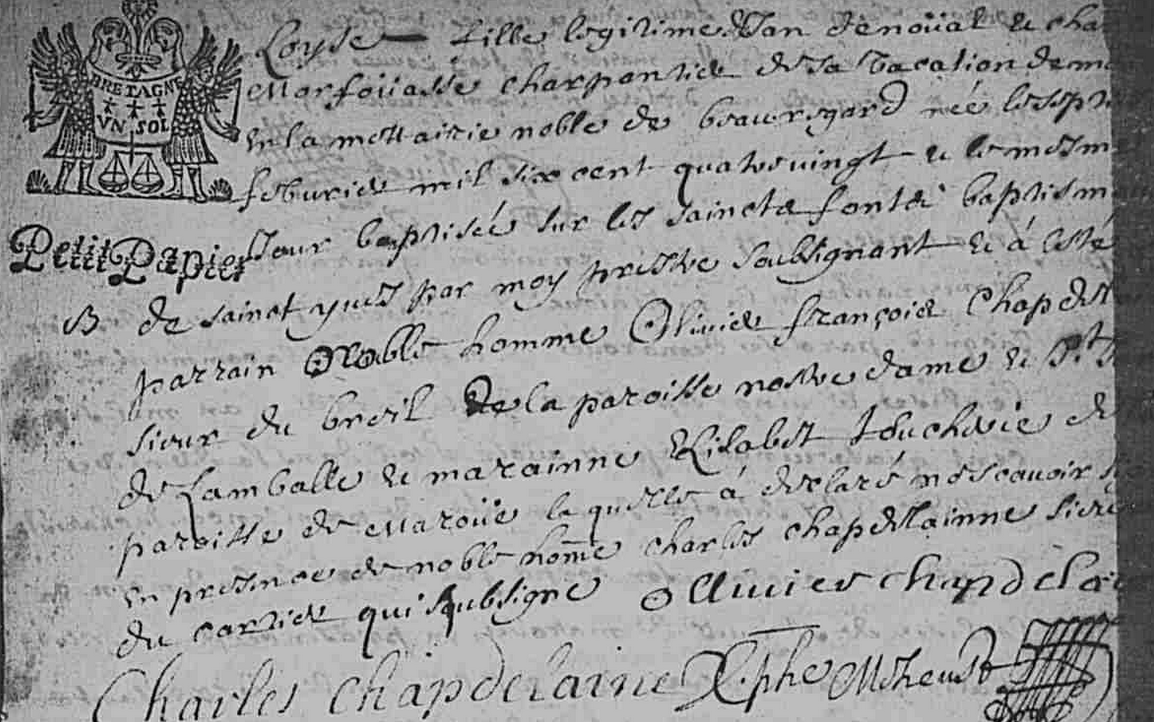 BRETAGNE
VN SOL
Petit Papier
Loyse fille legitime Jan denoüal & cha
Marfoüasse charpantier de sa vacation dem
en la mettairie noble de beauregard née le sept
feburier mil six cent quatre vingt & le mesme
Jour baptisée sur les saincts fonts baptism
B de sainct yues par moy prestre soubsignant & á esté
parrain Noble homme Olivier françois Chapdel
sieur du breil de la paroisse nostre dame & St
de Lamballe & marainne Elisabet touchais de
paroisse de Maroüe laquelle á declaré ne scauoir
en presence de noble hom̃e charles chapdellainne sieur
du cartier qui soubsigne olliuier chapdelai
Charles Chapdelaine